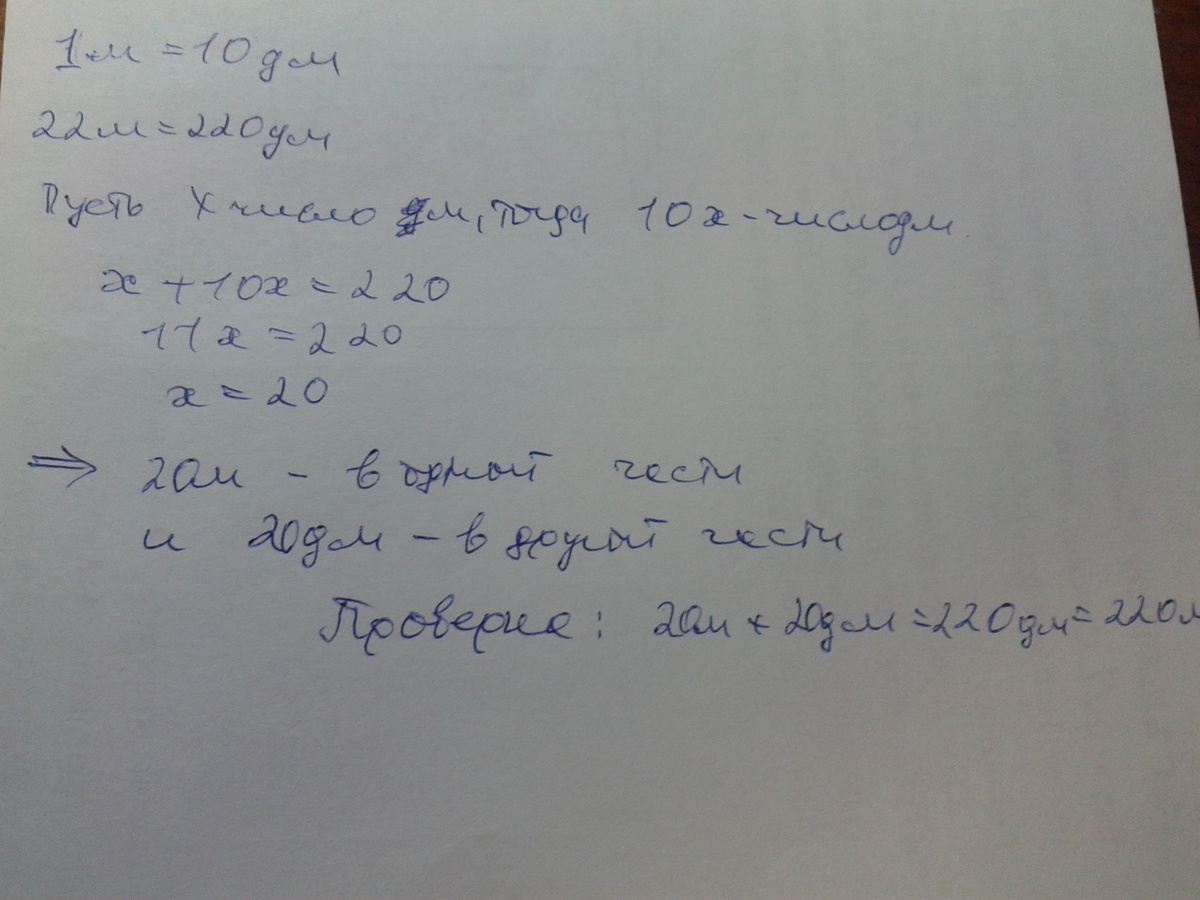 1м = 10 дм
22м = 220дм
Пусть x число дм, тогда 10x - число дм
x + 10x = 220
11x = 220
x = 20
⇒ 20м - в одной части
и 20дм - в другой части
Проверка: 20м + 20дм = 220дм = 220м